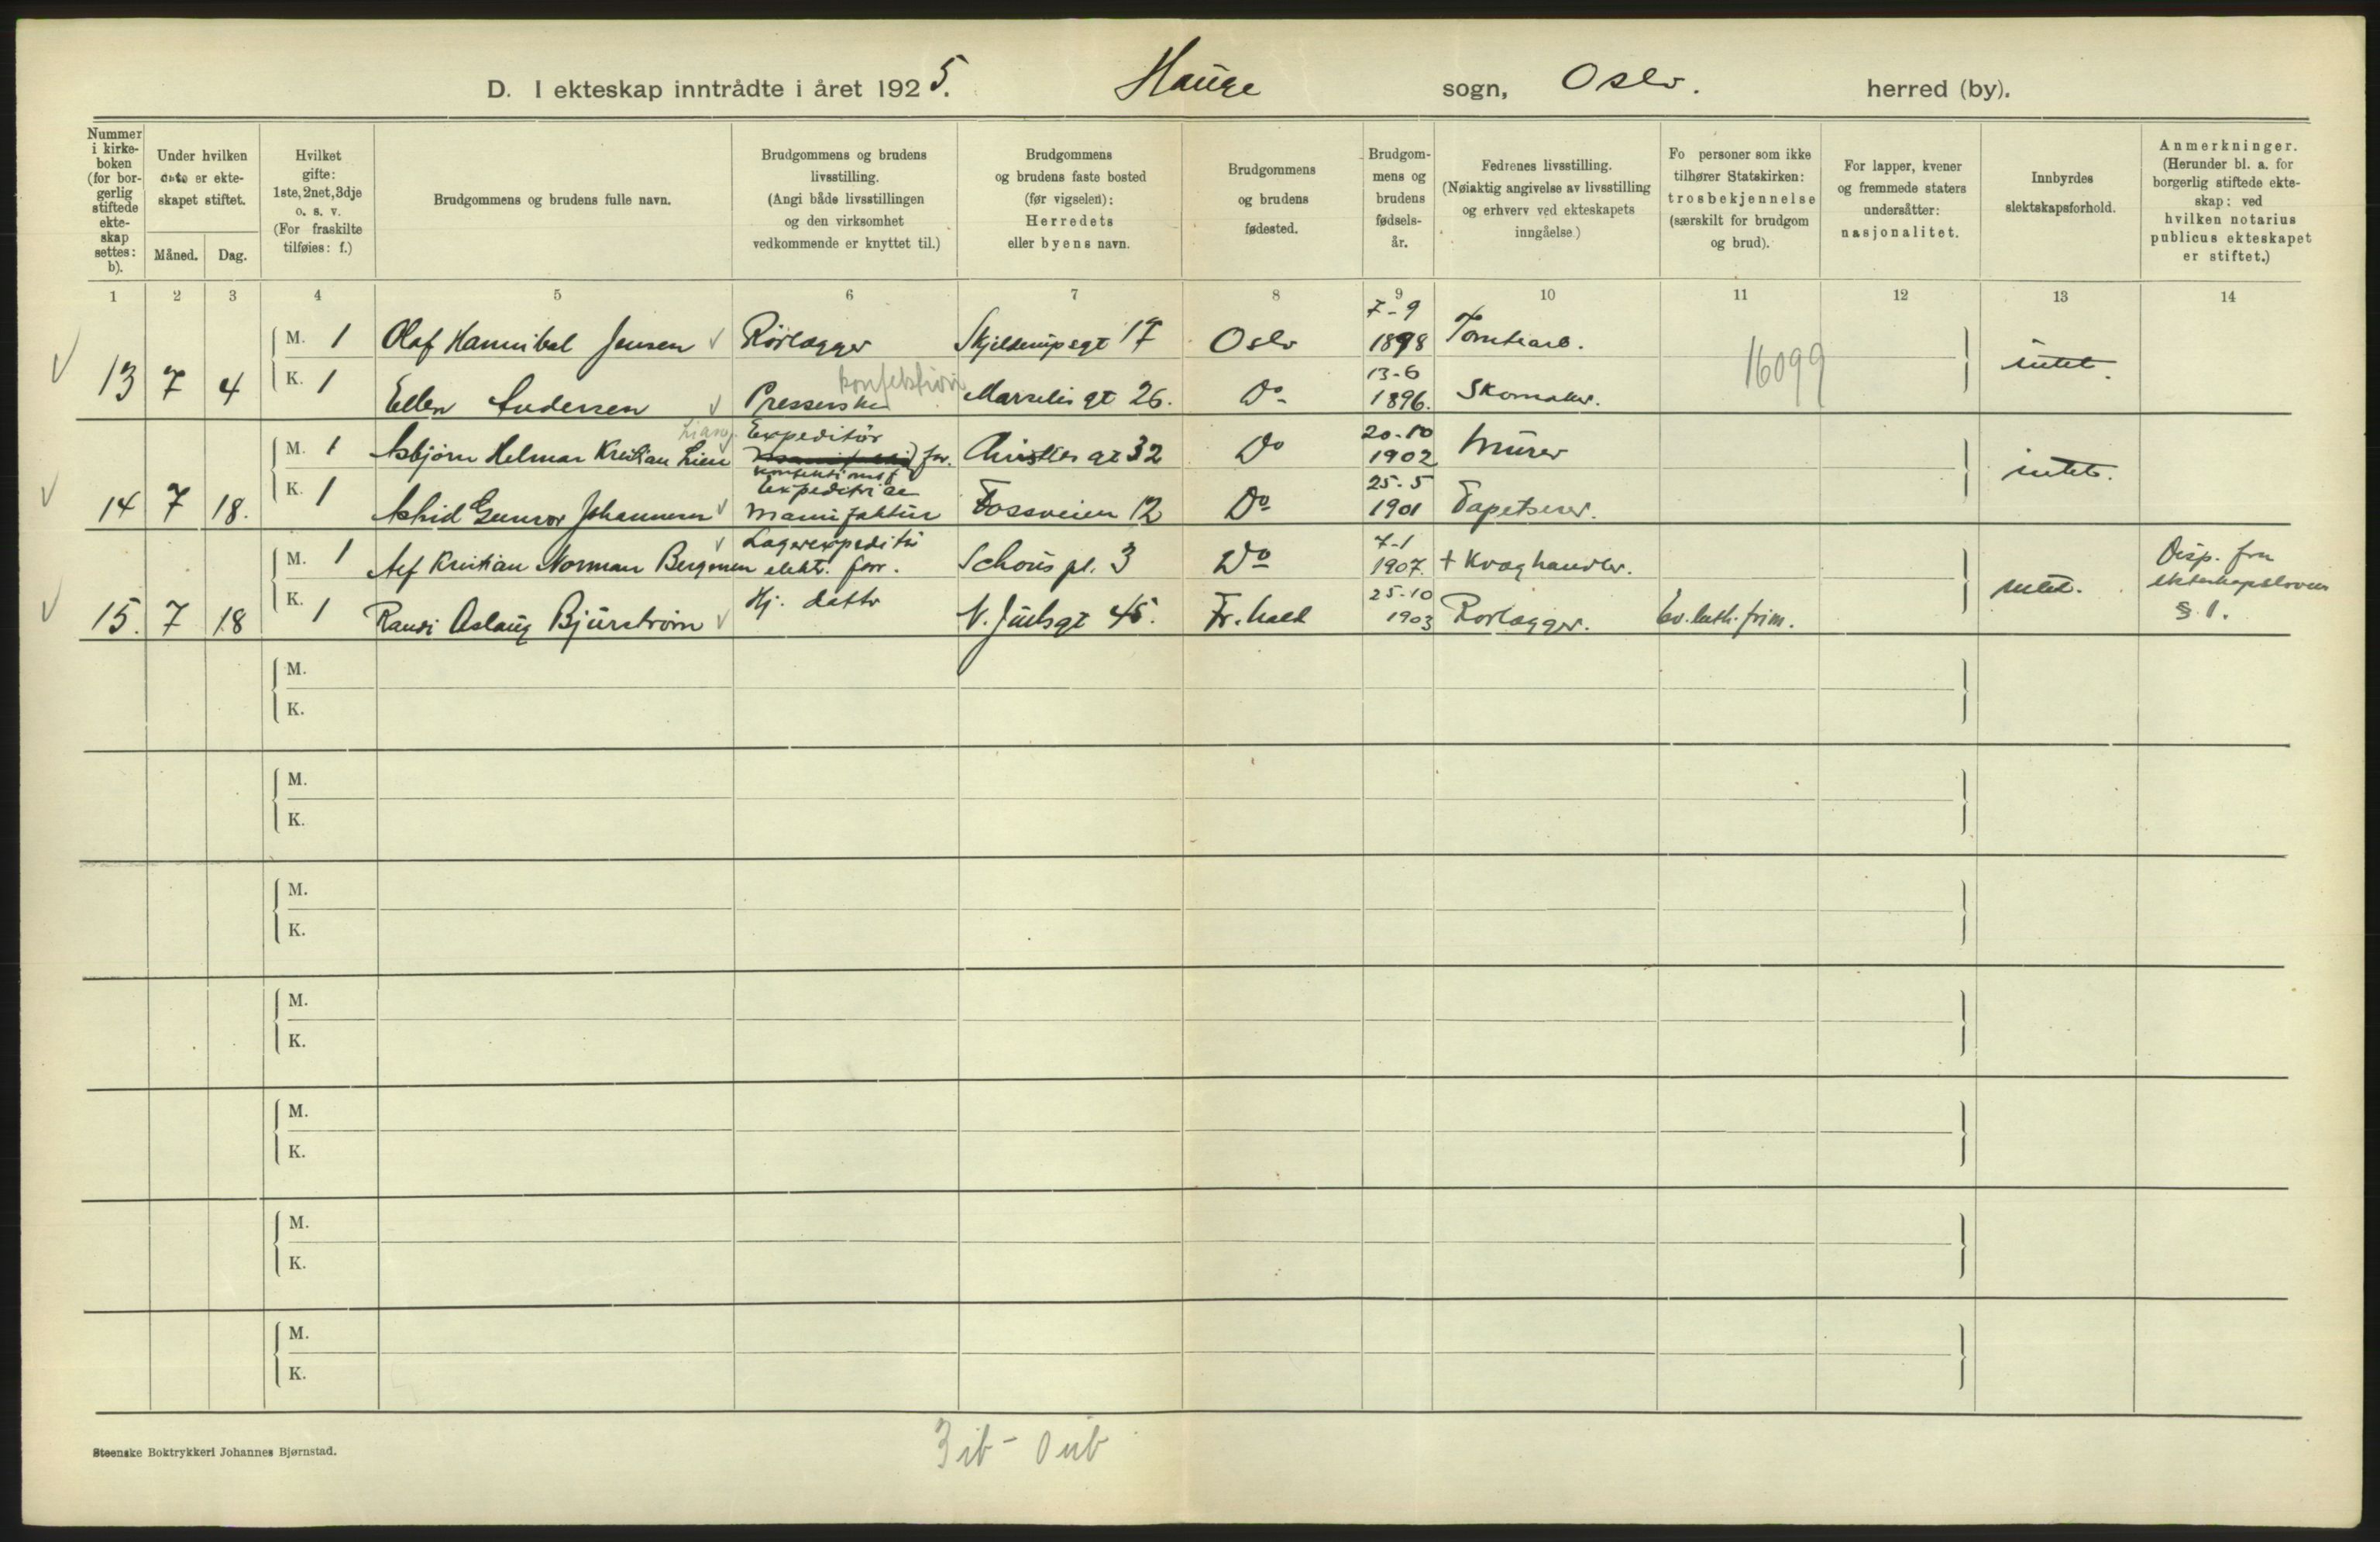 D. I ekteskap inntrådte i året 1925. Hauge sogn, Oslo. herred (by).
Nummer i kirkeboken (for borgerlig stiftede ekteskap settes: b).
Under hvilken dato er ekteskapet stiftet.
Måned. Dag.
Hvilket gifte: 1ste, 2net, 3dje o. s. v. (For fraskilte tilføies: f.)
Brudgommens og brudens fulle navn.
Brudgommens og brudens livsstilling. (Angi både livsstillingen og den virksomhet vedkommende er knyttet til.)
Brudgommens og brudens faste bosted (før vigselen): Herredets eller byens navn.
Brudgommens og brudens fødested.
Brudgommens og brudens fødselsår.
Fedrenes livsstilling. (Nøiaktig angivelse av livsstilling og erhverv ved ekteskapets inngåelse)
Fo personer som ikke tilhører Statskirken: trosbekjennelse (særskilt for brudgom og brud).
For lapper, kvener og fremmede staters undersåtter: nasjonalitet.
Innbyrdes slektskapsforhold.
Anmerkninger. (Herunder bl. a. for borgerlig stiftede ekteskap: ved hvilken notarius publicus ekteskapet er stiftet.)
1 2 3 4 5 6 7 8 9 10 11 12 13 14
13 7 4
M. 1 Olaf Hannibal Jensen Rørlægger Skjelderupsgt 17 Oslo 7-9 1898 Tomtearb.
K. 1 Ellen Andersen Presserske konfektion Marselis gt 26. Do 13-6 1896. Skomaker.
16099
intet.
14 7 18.
M. 1 Asbjørn Helmar Kristian Lien Expeditør for. Christies gt 32 Do 20-10 1902 Murer
K. 1 Astrid Gunvor Johannesen Expeditrice Manufaktur Fossveien 12 Do 25-5 1901 Tapetserer.
intet.
15. 7 18
M. 1 Alf Kristian Norman Bergersen Lagerexpeditør elektr. forr. Schous pl. 3 Do 7-1 1907. + Kvæghandler.
K. 1 Randi Aslaug Bjurstrøm Hj. datter N. Juelsgt 45. Fr.hald 25-10 1903 Rørlægger. Ev. luth. frim.
intet.
Disp. fra ekteskapsloven § 1.
M.
K.
M.
K.
M.
K.
M.
K.
M.
K.
M.
K.
M.
K.
Steenske Boktrykkeri Johannes Bjørnstad.
3 ib - 0 ub